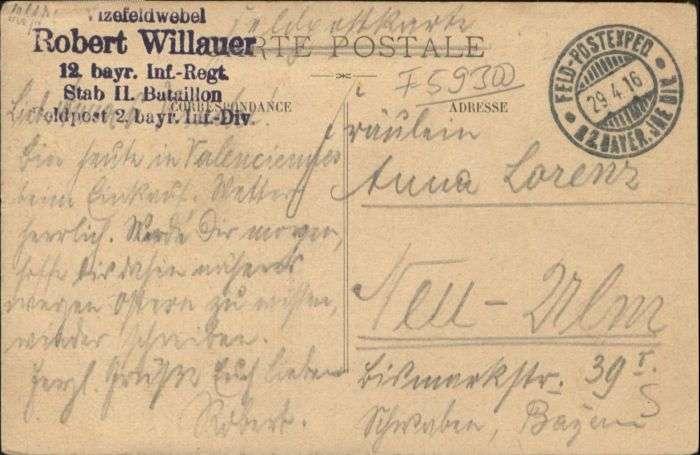 Feldpostkarte
Vizefeldwebel
Robert Willauer
12. bayr. Inf.-Regt.
Stab II. Bataillon
Feldpost 2. bayr. Inf.-Div.
CARTE POSTALE
CORRESPONDANCE
ADRESSE
F 5930
FELD-POSTEXPED.
29.4.16
2. BAYER. INF DIV
Bin heute in Valenciennes
beim Einkauf. Wetter
herrlich. Werde Dir morgen,
hoffe bis dahin näheres
wegen Ostern zu wissen,
wieder schreiben.
Herzl. Grüße Euch Lieben
Robert.
Fräulein
Anna Lorenz
Neu-Ulm
Bismarkstr. 39 r.
Schwaben, Bayern